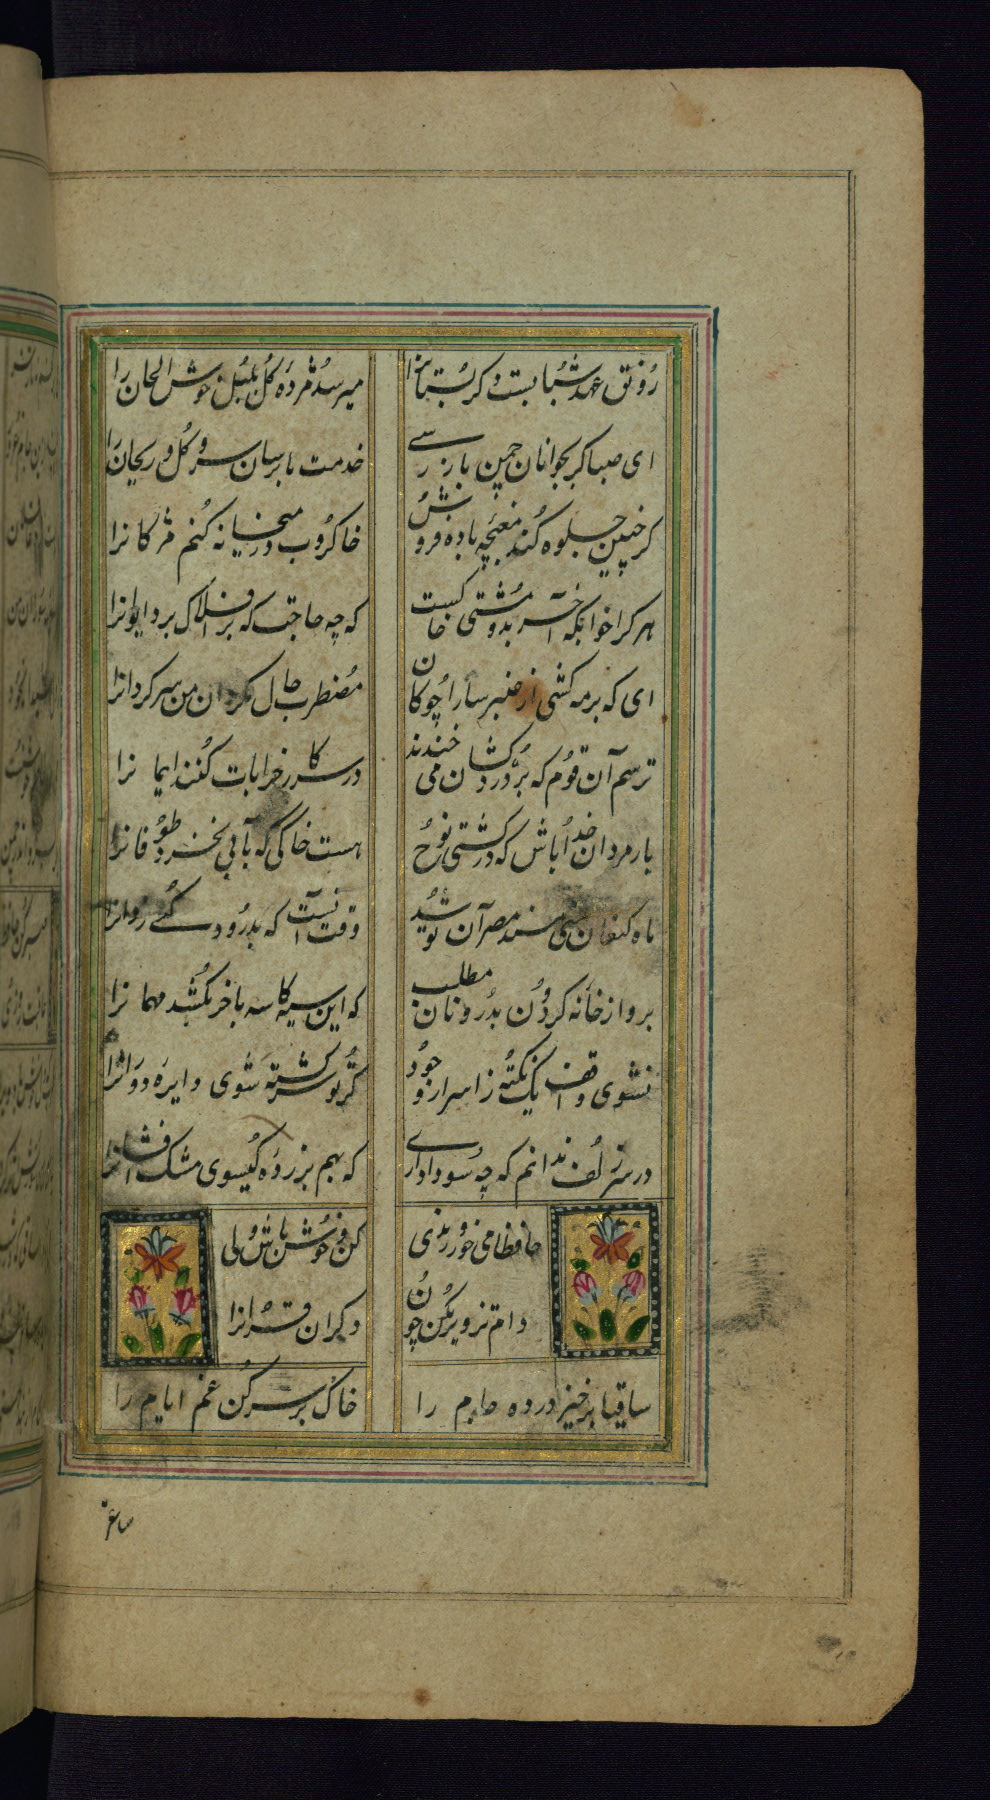 رونق عهد شبابست دکر بستانرا
میرسد مژده کل بلبل خوش الحان را
ای صبا کر بجوانان چمن باز رسی
خدمت ما برسان سرو کل و ریحان را
کر چنین جلوه کند مغبچه باده فروش
خاکروب در میخانه کنم مژکانرا
هر کرا خوابکه آخر بدو مشتی خاکست
که چه حاجت که بر افلاک برد ایوانرا
ای که بر مه کشی از عنبر سارا چوکان
مضطرب حال مکردان من سرکردانرا
ترسم آن قوم که بر دردکشان می خندند
در سر کار خرابات کنند ایمانرا
یار مردان خدا باش که در کشتی نوح
هست خاکی که بآبی نخرد طوفانرا
ماه کنعانی من مسند مصر آن تو شد
وقت آنست که بدرود کنی زندانرا
برو از خانه کردون بدر و نان مطلب
که این سیه کاسه باخر بکشد مهمانرا
نشوی واقف یک نکته ز اسرار وجود
کر تو سرکشته شوی دایره دورانرا
در سر زلف ندانم که چه سودا داری
که بهم بر زده کیسوی مشک افشانرا
حافظا می خور و رندی
کن و خوش باش ولی
دام تزویر مکن چون
دکران قرآنرا
ساقیا برخیز در ده جام را
خاک بر سر کن غم ایام را
ساغر